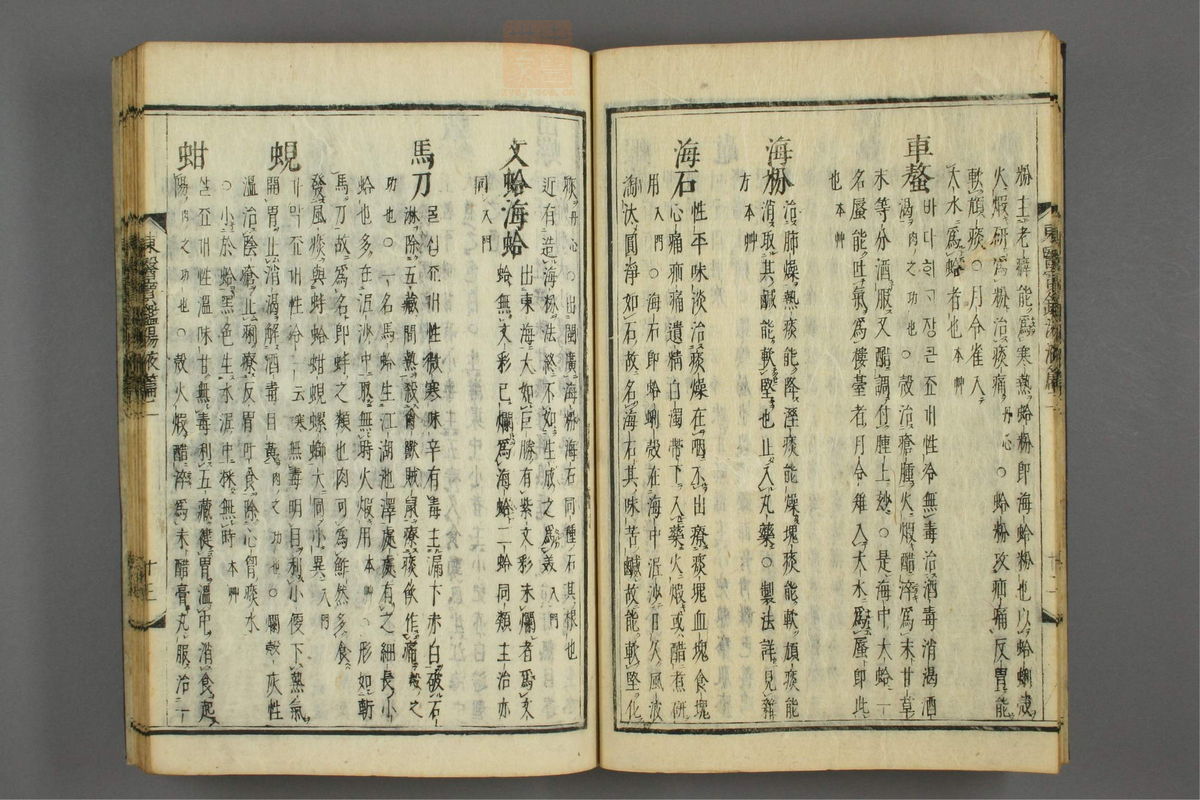 粉主老痰能爲寒熱蛤粉即海蛤粉也以蛤蜊殼
火煆研爲粉治痰痛丹心○蛤粉攻疝痛反胃能
軟頑痰○月令雀入
大水爲蛤者也本艸
車螯바다희ᄀᆞ장큰죠개性冷無毒治酒毒消渴酒
渴肉之功也○殼治瘡腫火煆醋淬爲末甘草
末等分酒服又醋調付腫上妙○是海中大蛤一
名蜃能吐氣爲樓䑓者月令雉入大水爲蜃即此
也本艸
海粉治肺燥熱痰能降溼痰能燥塊痰能軟頑痰能
消取其鹹能軟堅也止入丸藥○製法詳見雜
方本艸
海石性平味淡治痰燥在咽不出療痰塊血塊食塊
心痛疝痛遺精白濁帶下入藥火煆或醋煮研
用入門○海石即蛤蜊殼在海中泥沙日久風波
淘汰圓淨如石故名海石其味苦鹹故能軟堅化
痰丹心○出閩廣海粉海石同種石其根也
近有造海粉法終不如生成之爲美入門
文蛤海蛤出東海大如巨勝有紫文彩未爛者爲文
蛤無文彩已爛爲海蛤二蛤同類主治亦
同入門
馬刀ᄆᆞᆯ십죠개性微寒味辛有毒主漏下赤白破石
淋除五藏間熱殺禽獸賊鼠療痰飮作痛殼之
功也○一名馬蛤生江湖池澤處處有之細長小
蛤也多在泥沙中取無時火煆用本艸○形如斬
馬刀故爲名即蚌之類也肉可爲鮓然多食
發風痰與蚌蛤蚶蜆螺螄大同小異入門
蜆가막죠개性冷一云寒無毒明目利小便下熱氣
開胃止消渴解酒毒目黃肉之功也○爛殼灰性
溫治陰瘡止痢療反胃吐食除心胷痰水
○小於蛤黑色生水泥中採無時本艸
蚶살죠개性溫味甘無毒利五藏健胃溫中消食起
陽肉之功也○殼火煆醋淬爲末醋膏丸服治一
東醫寶鑑湯液篇一